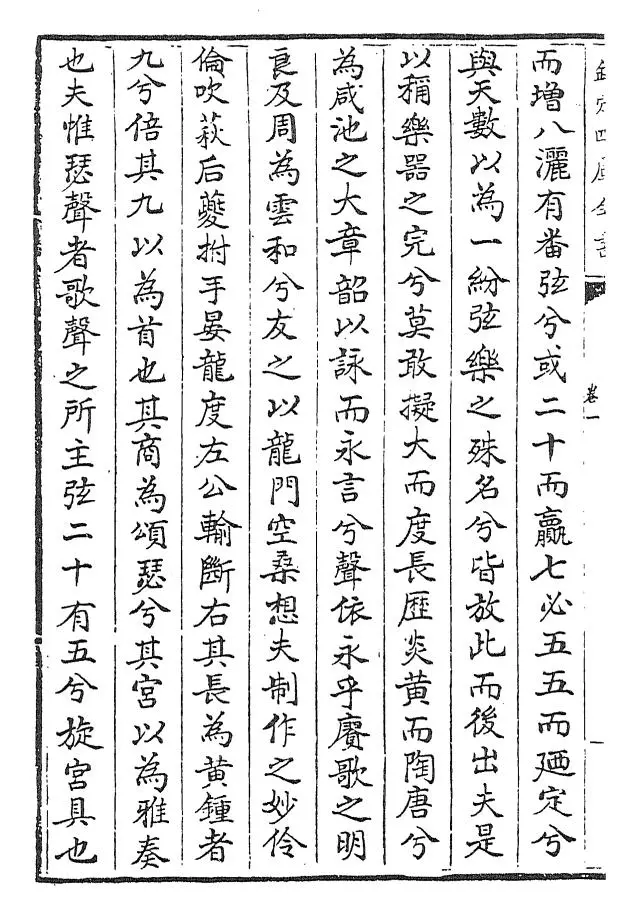 欽定四庫全書
卷一
一
而增八灑有番弦兮或二十而贏七必五五而廼定兮
與天數以為一紛弦樂之殊名兮皆放此而後出夫是
以稱樂器之完兮莫敢擬大而度長歷炎黄而陶唐兮
為咸池之大章韶以詠而永言兮聲依永乎賡歌之明
良及周為雲和兮友之以龍門空桑想夫制作之妙伶
倫吹萩后夔拊手晏龍度左公輸斷右其長為黄鍾者
九兮倍其九以為首也其商為頌瑟兮其宮以為雅奏
也夫惟瑟聲者歌聲之所主弦二十有五兮旋宮具也